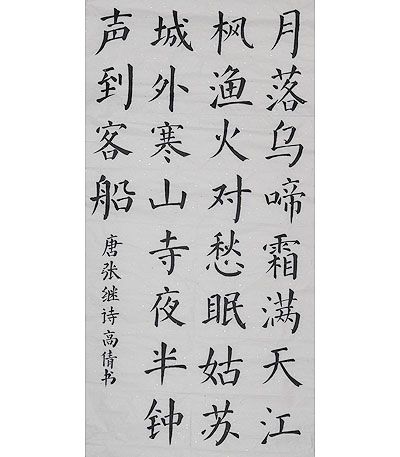 月落乌啼霜满天江
枫渔火对愁眠姑苏
城外寒山寺夜半钟
声到客船
唐张继诗高倩书